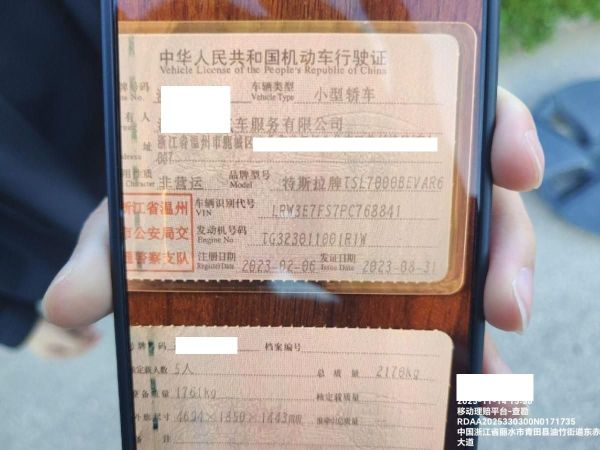 中华人民共和国机动车行驶证
Vehicle License of the People's Republic of China
牌号码
车辆类型
Vehicle Type
小型轿车
有 人
车服务有限公司
浙江省温州市鹿城区
007
品牌型号
Model
特斯拉牌TSL7000BEVAR6
Character
非营运
浙江省温州
市公安局交
通警察支队
车辆识别代号
VIN
LRW3E7FS7PC768841
发动机号码
Engine No
TG323011001R1W
注册日期
Register Date
2023-02-06
发证日期
Issue Date
2023-08-31
号牌号码
档案编号
核定载人数
5人
总 质 量
2176kg
整备质量
1761kg
核定载质量
外廓尺寸
4694×1850×1443
移动理赔平台-查勘
RDAA2025330300N0171735
中国浙江省丽水市青田县油竹街道东赤
大道